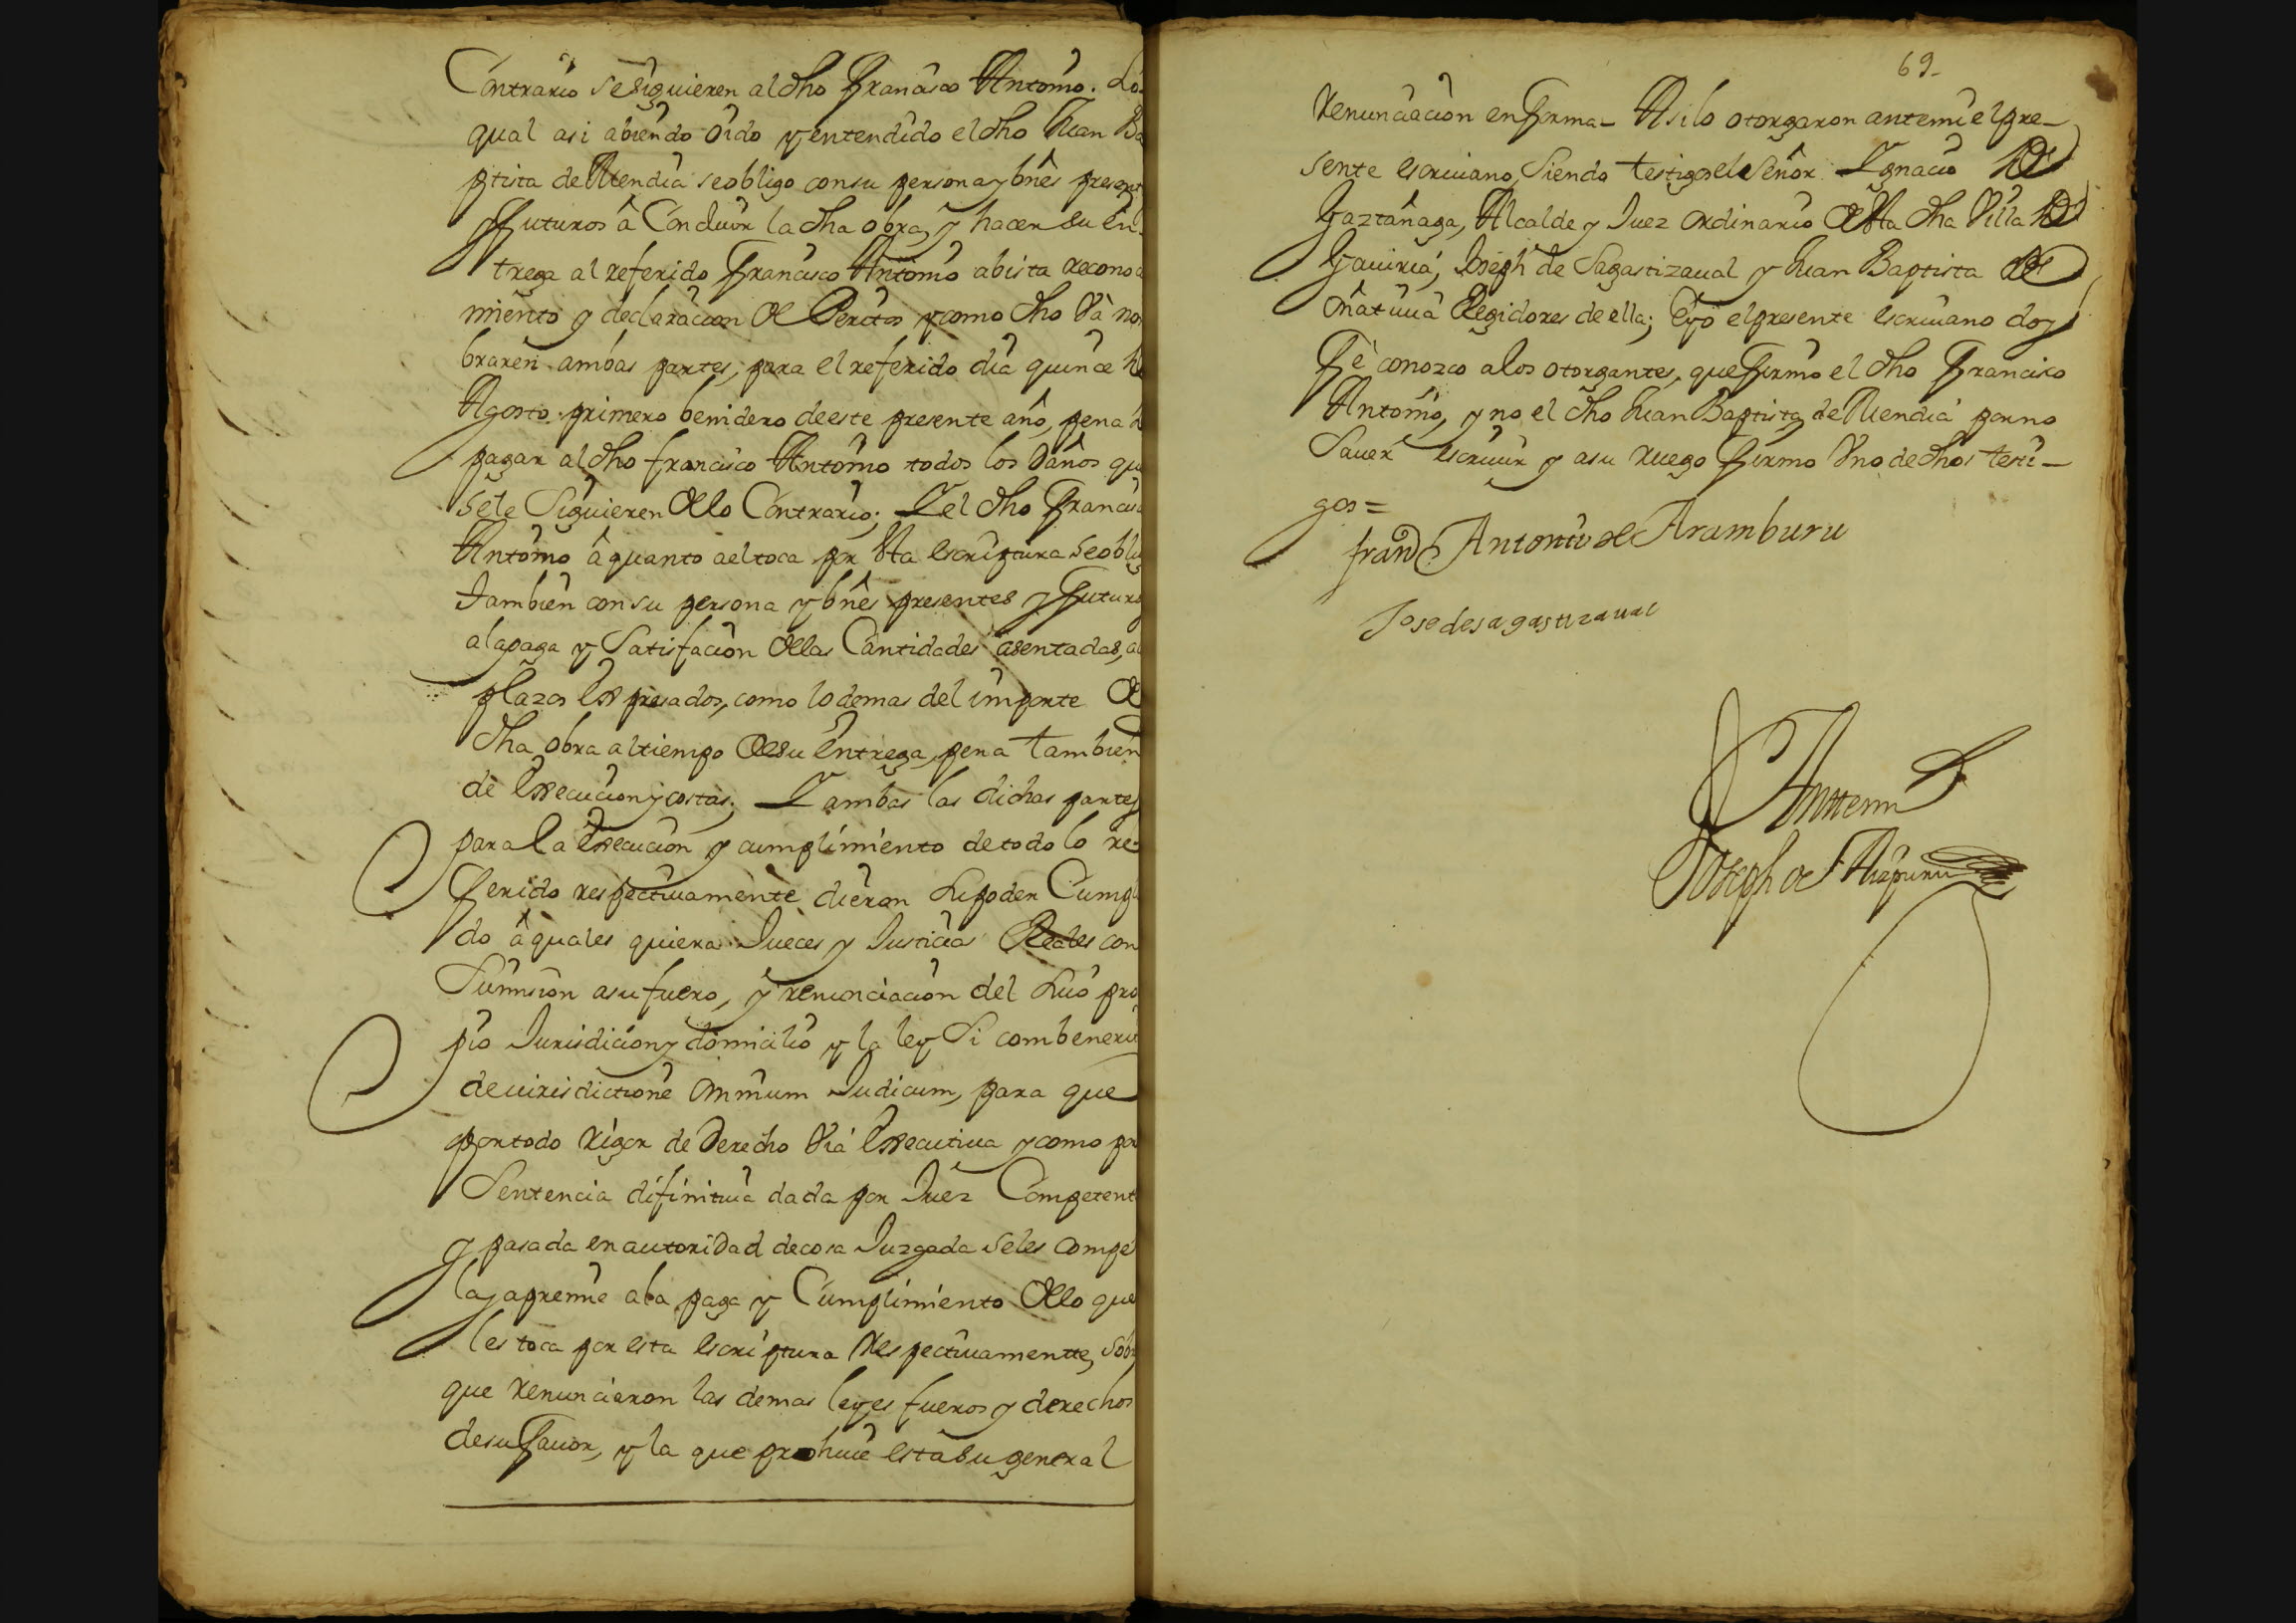 Contrario se siguieren al dho Francisco Antonio. Lo
qual asi abiendo oido y entendido el dho Juan Ba
ptista de Mendia se obligo con su persona y bnês present
y futuros â Concluir la dha obra, y hacer su en-
trega al referido Francisco Antonio abista recono
miento y declaracion de Peritos y como dho Và nom
braren ambas partes, para el referido dia quince de
Agosto primero benidero de este presente año, pena
pagar al dho francisco Antonio todos los Daños que
sele Siguieren de lo Contrario; Y el dho Francis
Antonio â quanto ael toca por esta escriptura se oblig
Tambien con su persona y bnês presentes y futuro
ala paga y Satisfacion de las Cantidades asentadas, a
plazos Expresados, como lo demas del importe de
dha obra al tiempo de su entrega, pena tambien
de Execucion y costas. Y ambas las dichas partes
para la Execucion y cumplimiento de todo lo re-
ferido respectiuamente dieron su poder Cumpl
do â quales quiera Jueces y Justicias Reales con
Sumision asu fuero, y renunciacion del suio pro
pio Jurisdicion y domicilio y la ley Si combeneri
de iurisdictione omnium Judicum, para que
por todo rigor de Derecho Via Executiua y como por
Sentencia difinitiua dada por Juez Competent
y pasada en autoridad de cosa Juzgada seles compe
la y apremie ala paga y Cumplimiento de lo que
les toca por esta escriptura Respectiuamentte, sob
que renunciaron las demas leyes fueros y derechos
de su fauor, y la que prohiue esta su general
69-
renunciacion en forma- Asi lo otorgaron antemi el pre-
sente escriuano, Siendo testigos el Señor Ygnacio de
Gaztañaga, Alcalde y Juez ordinario de esta dha Villa de
Gauiria, Joseph de Sagastizaual y Juan Baptista de
Oñatiuia Regidores de ella; E yo el presente escriuano doy
Fè conozco alos otorgantes, que firmo el dho Francisco
Antonio, y no el dho Juan Baptista de Mendia por no
Sauer escriuir y asu ruego firmo Vno de dhos testi-
gos=
franco Antonio de Aramburu
Jose de sagastizaual
Anttemi
Joseph de